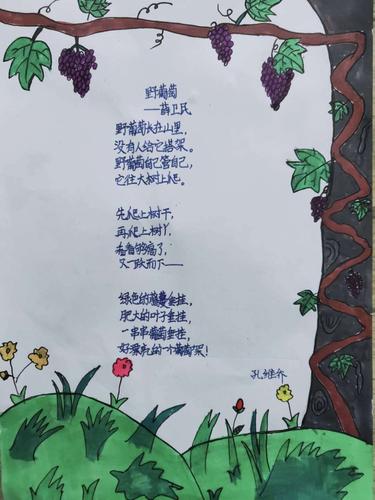 野葡萄
——薛卫民
野葡萄长在山里,
没有人给它搭架。
野葡萄自己管自己,
它往大树上爬。
先爬上树干,
再爬上树丫,
看看够高了,
又一跃而下——
绿色的藤蔓垂挂,
肥大的叶子垂挂,
一串串葡萄垂挂,
好漂亮的一个葡萄架!